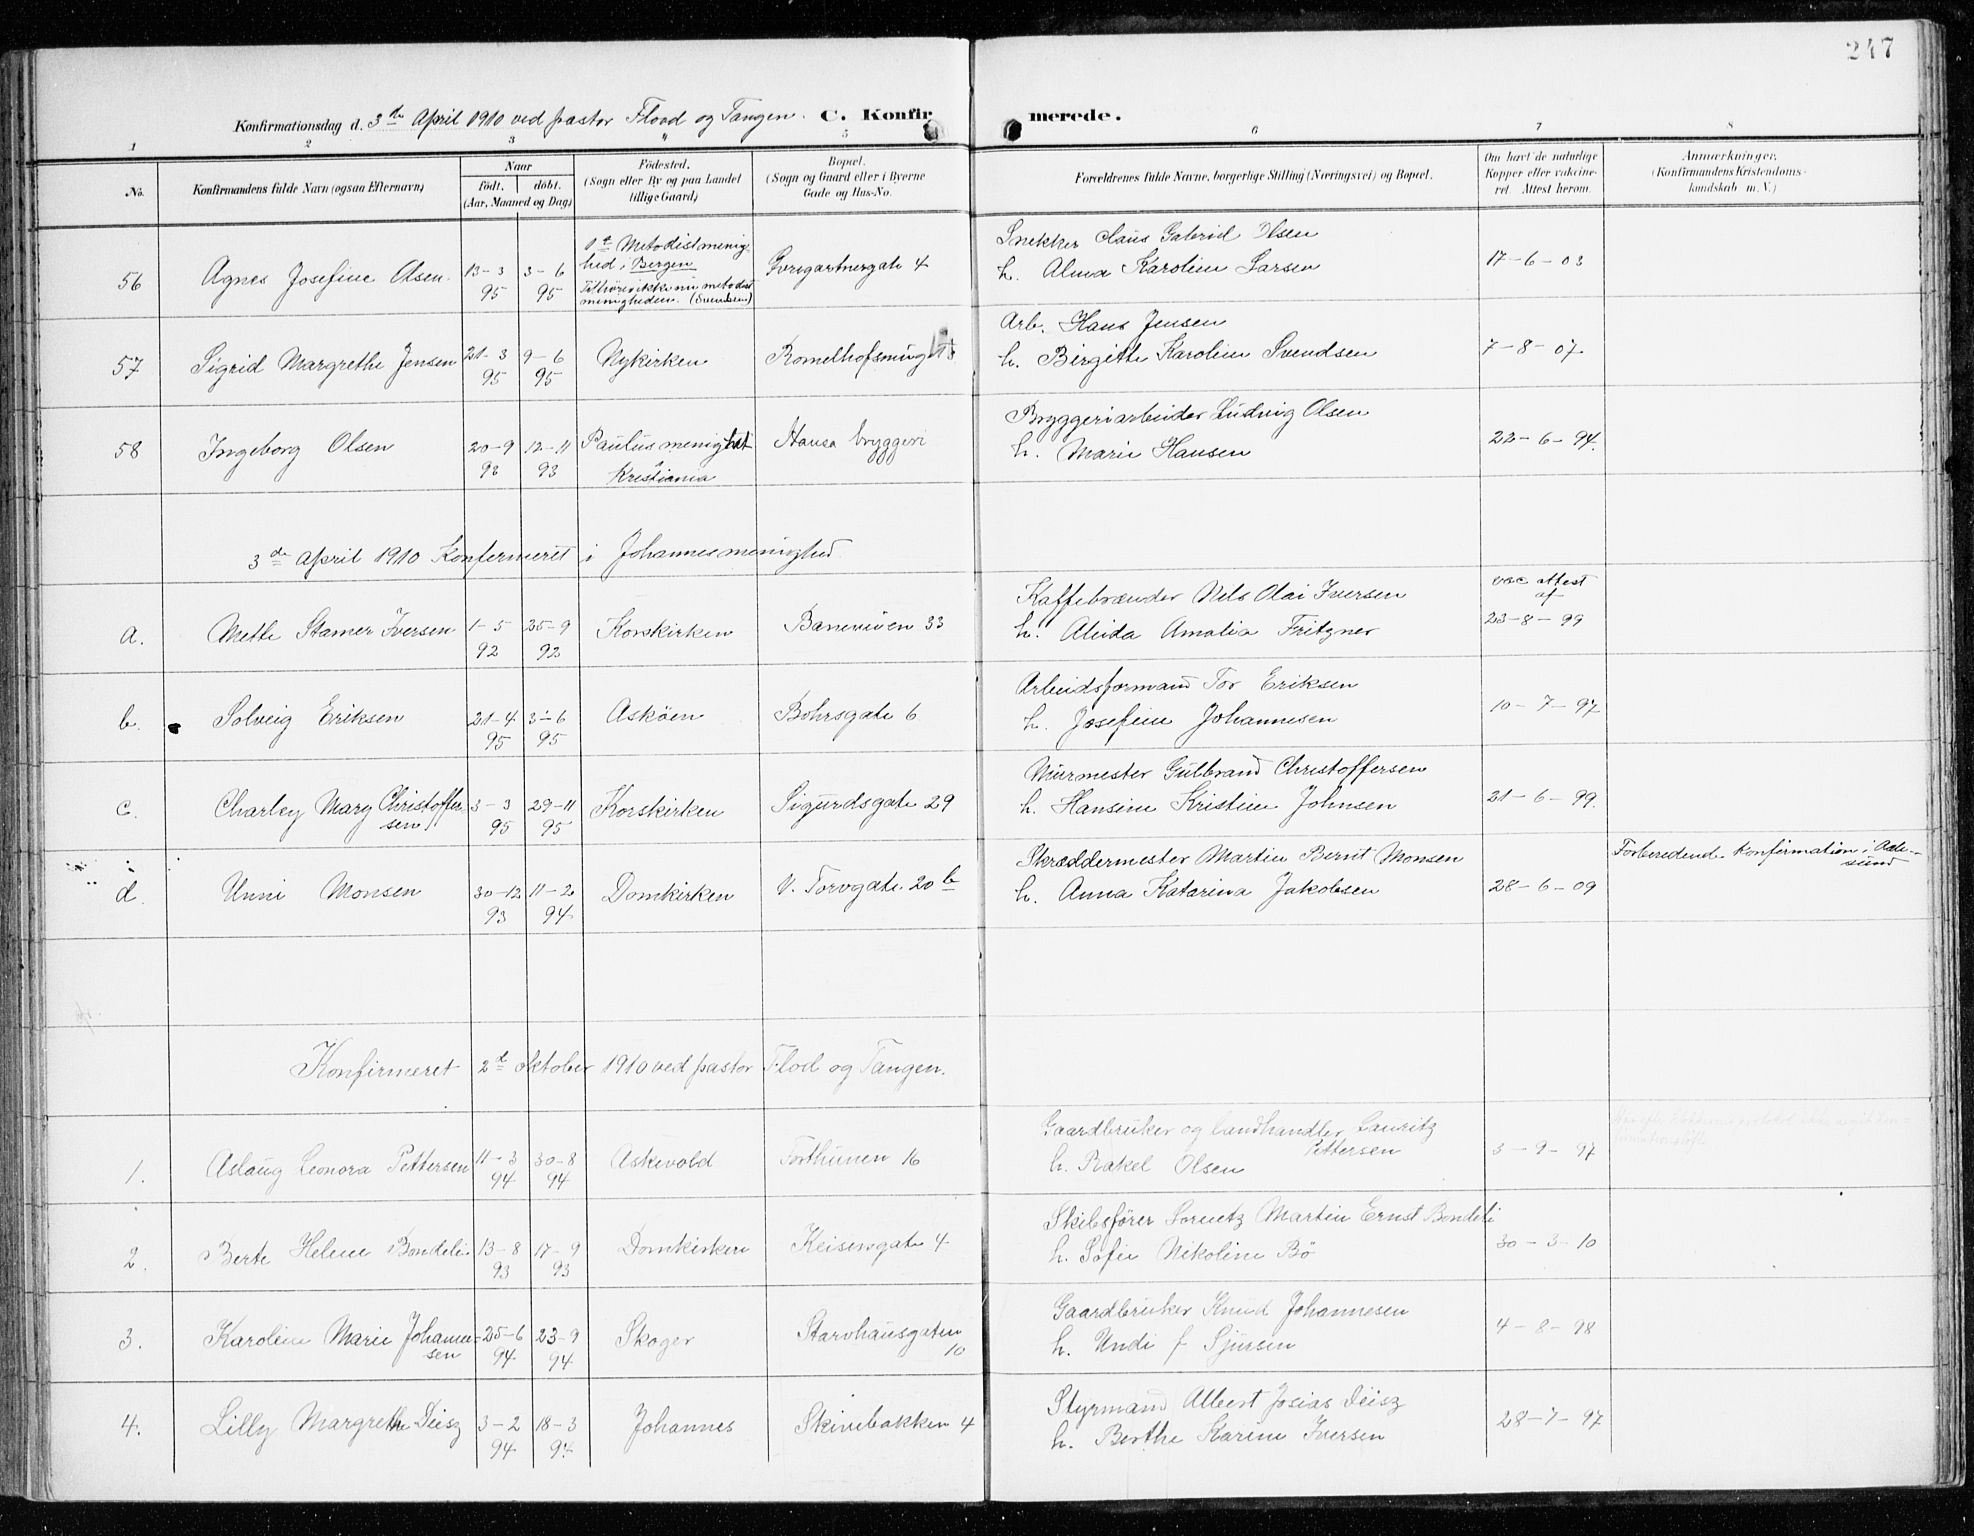 247
Konfirmationsdag d. 3de April 1910 ved pastor Flood og Tangen. C. Konfirmerede.
1 2 3 4 5 6 7 8
No. Konfirmandens fulde Navn (ogsaa Efternavn) Naar født. døbt. (Aar, Maaned og Dag) Fødested. (Sogn eller By og paa Landet tillige Gaard) Bopæl. (Sogn og Gaard eller i Byerne Gade og Hus-No. Forældrenes fulde Navne, borgerlige Stilling (Næringsvei) og Bopæl. Om havt de naturlige Kopper eller vaccineret. Attest herom. Anmærkninger. (Konfirmandens Kristendomskundskab m. V.)
56 Agnes Josefine Olsen 13-3 95 3-6 95 1st Metodistmenighed i Bergen Tilhører ikke nu metodistmenigheden. (Svendsen) Gartnergate 4 Snekker Claus Gabriel Olsen h. Alma Karoline Larsen 17-6-03
57 Sigrid Margrethe Jensen 21-3 95 9-6 95 Nykirken Arb. Hans Jensen h. Birgitte Karoline Svendsen 7-8-07
58 Ingeborg Olsen 20-9 93 12-11 93 Paulus menighet Kristiania Hansa bryggeri Bryggeriarbeider Ludvig Olsen h. Marie Hansen 22-6-94.
3de April 1910 Konfermeret i Johannesmenighed
a. Mette Stamer Iversen 1-5 92 25-9 92 Korskirken Baneveien 33 Kaffebrænder Nels Olai Iversen h. Alida Amalia Fritzner vac attest af 23-8-99
b. Solveig Eriksen 21-4 95 3-6 95 Askøen Bohrsgate 6 Arbeidsformand Tor Eriksen h. Josefine Johannesen 10-7-97
c. Charley Mary Christoffersen 3-3 95 29-11 95 Korskirken Sigurdsgate 29 Murmester Gulbrand Christoffersen h. Hansine Kristine Johnsen 21-6-99.
d. Unni Monsen 30-12 93 11-2 94 Domkirken V. Torvgate 20 b Skræddermester Martin Bernt Monsen h. Anna Katarina Jakobsen 28-6-09 Forberedende konfirmation i Aalesund
Konfirmeret 2d oktober 1910 ved pastor Flod og Tangen.
1. Aslaug Leonora Pettersen 11-3 94 30-8 94 Askevold Torthunen 16 Gaardbruker og landhandler Lauritz Pettersen h. Rakel Olsen 3-9-97
2. Berte Helene Bondeli 13-8 93 17-9 93 Domkirken Keisersgate 4 Skibsfører Lorentz Martin Ernst Bondeli h. Sofie Nikoline Bø 30-3-10
3. Karoline Marie Johannesen 25-6 94 23-9 94 Skoger Starvhausgaten 10 Gaardbruker Knud Johannesen h. Undi f Sjursen 4-8-98
4. Lilly Margrethe Deisz 3-2 94 18-3 94 Johannes Skivebakken 4 Styrmand Albert Josias Deisz h. Berthe Karine Iversen 28-7-97